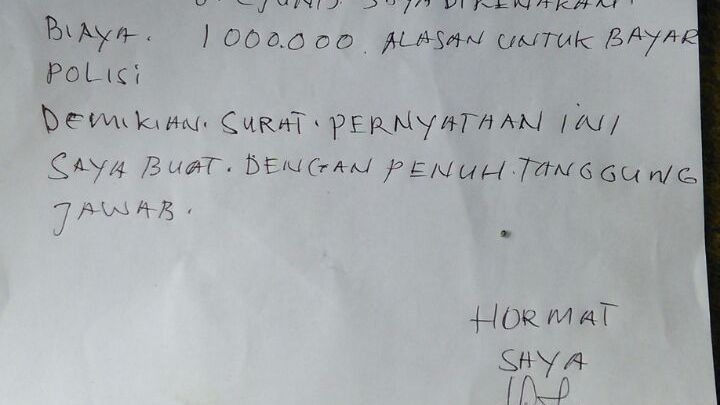 SAYA DIKENAKAN
BIAYA. 1000.000. ALASAN UNTUK BAYAR
POLISI
DEMIKIAN. SURAT. PERNYATAAN INI
SAYA BUAT. DENGAN PENUH. TANGGUNG
JAWAB.
HORMAT
SAYA